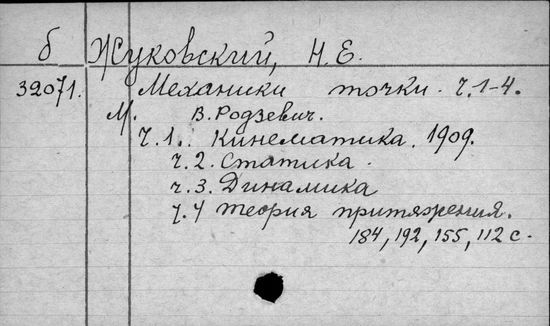 б Жуковский, Н. Е.
32071. Механики точки. ч. 1-4.
М. В. Родзевич.
Ч. 1. Кинематика. 1909.
ч. 2. Статика.
ч. 3. Динамика
ч. 4 теория притяжения.
184, 192, 155, 112 с.